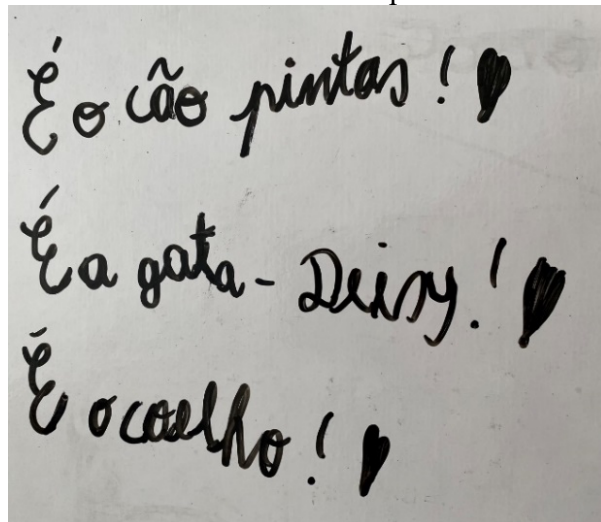 É o cão pintas! ♥
É a gata - Deisy! ♥
É o coelho! ♥